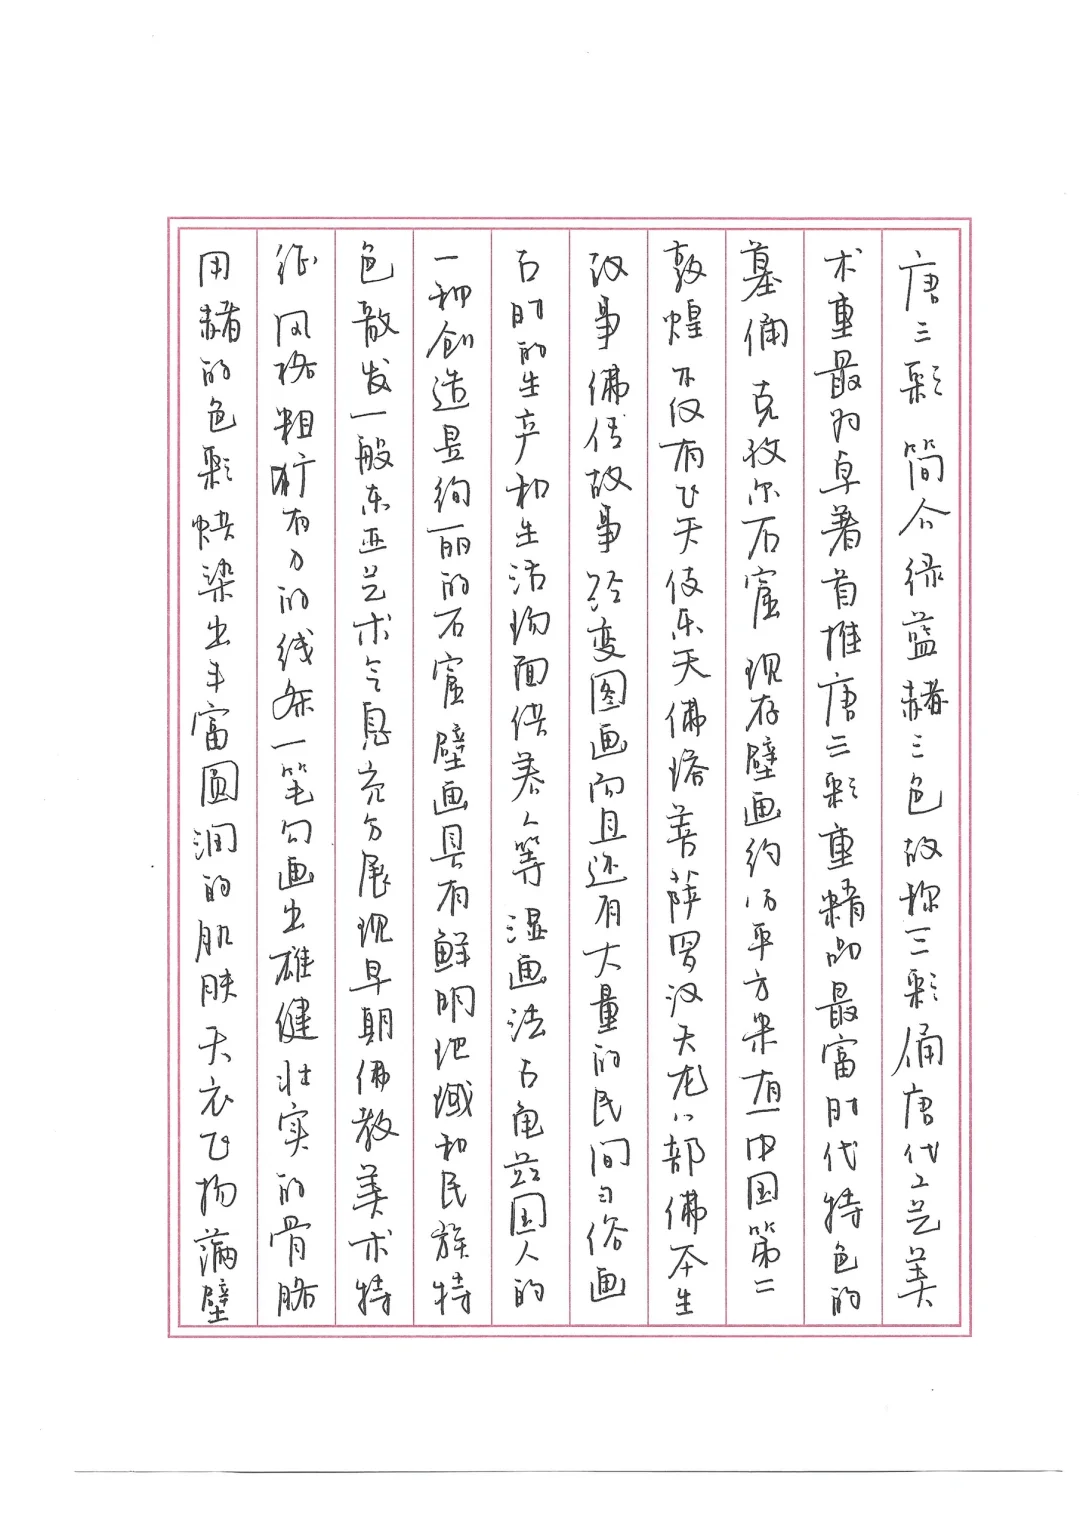 唐三彩 简介绿蓝赭三色故称三彩俑唐代工艺美
术重最为卓著首推唐三彩重精品最富时代特色的
墓俑 克孜尔石窟 现存壁画约万平方米有中国第二
敦煌 不仅有飞天伎乐天佛塔菩萨罗汉天龙八部佛本生
故事佛传故事经变图画而且还有大量的民间习俗画
古时的生产和生活场面供养人等 湿画法古龟兹国人的
一种创造昱绚丽的石窟壁画具有鲜明地域和民族特
色散发一般东亚艺术气息充分展现早期佛教美术特
征 风格粗犷有力的线条一笔勾画出雄健壮实的骨胳
用赭的色彩烘染出丰富圆润的肌肤天衣飞扬满壁